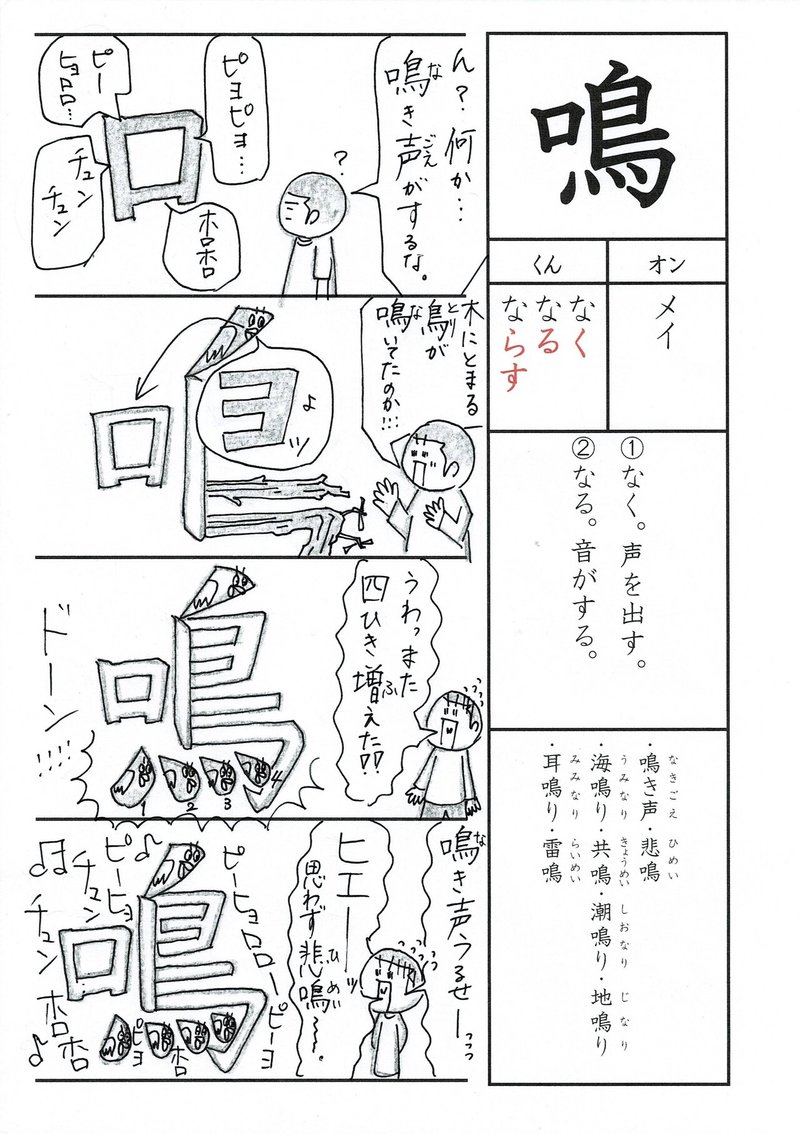 鳴
オン
メイ
くん
なく
なる
ならす
①なく。声を出す。
②なる。音がする。
・鳴き声・悲鳴
なきごえ ひめい
・海鳴り・共鳴・潮鳴り・地鳴り
うみなり きょうめい しおなり じなり
・耳鳴り・雷鳴
みみなり らいめい
ん？何か…
鳴き声がするな。
な ごえ
？
ピヨピヨ…
ピー
ヒョロロ…
口
チュン
チュン
ホロホロ
木にとまる
鳥が
とり
鳴いてたのか!!!
な
ヨ
ョ
ッ
口
うわっまた
四ひき増えた!!
ふ
鳴
ドーン!!!!
1
2
3
4
鳴き声うるせーっっっ
な
ヒエーーッ
思わず悲鳴〜〜。
ひめい
ピーヒョロローピーヨ
♪
ピーヒョ
チュン
♫
チュン
鳴
ホロホロ
♪
ピヨ
ホロ